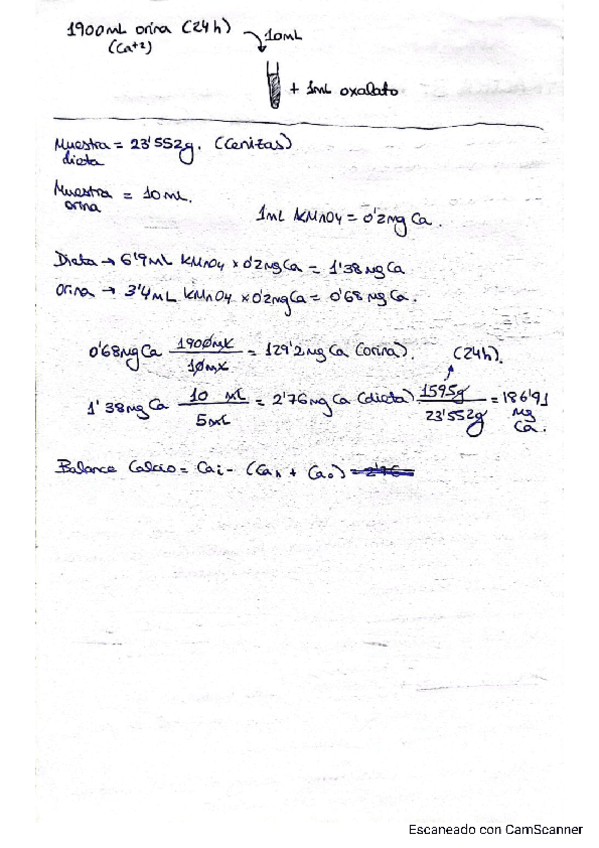 1900mL orina (24h) 10mL
(Ca+2)
+ 1mL oxalato
Muestra = 23'552g. (Cenizas)
dieta
Muestra = 10 mL.
orina
1mL KMnO4 = 0'2mg Ca.
Dieta → 6'9mL KMnO4 x 0'2mgCa = 1'38 mg Ca
Orina → 3'4mL KMnO4 x 0'2mgCa = 0'68 mg Ca.
0'68mgCa 1900mL/10mL = 129'2mg Ca (orina). (24h).
1'38mgCa 10 mL/5mL = 2'76mg Ca (dieta) 1595g/23'552g = 186'91 mg Ca.
Balance Calcio = Cai - (Cah + Cao) = 2'76 =
Escaneado con CamScanner